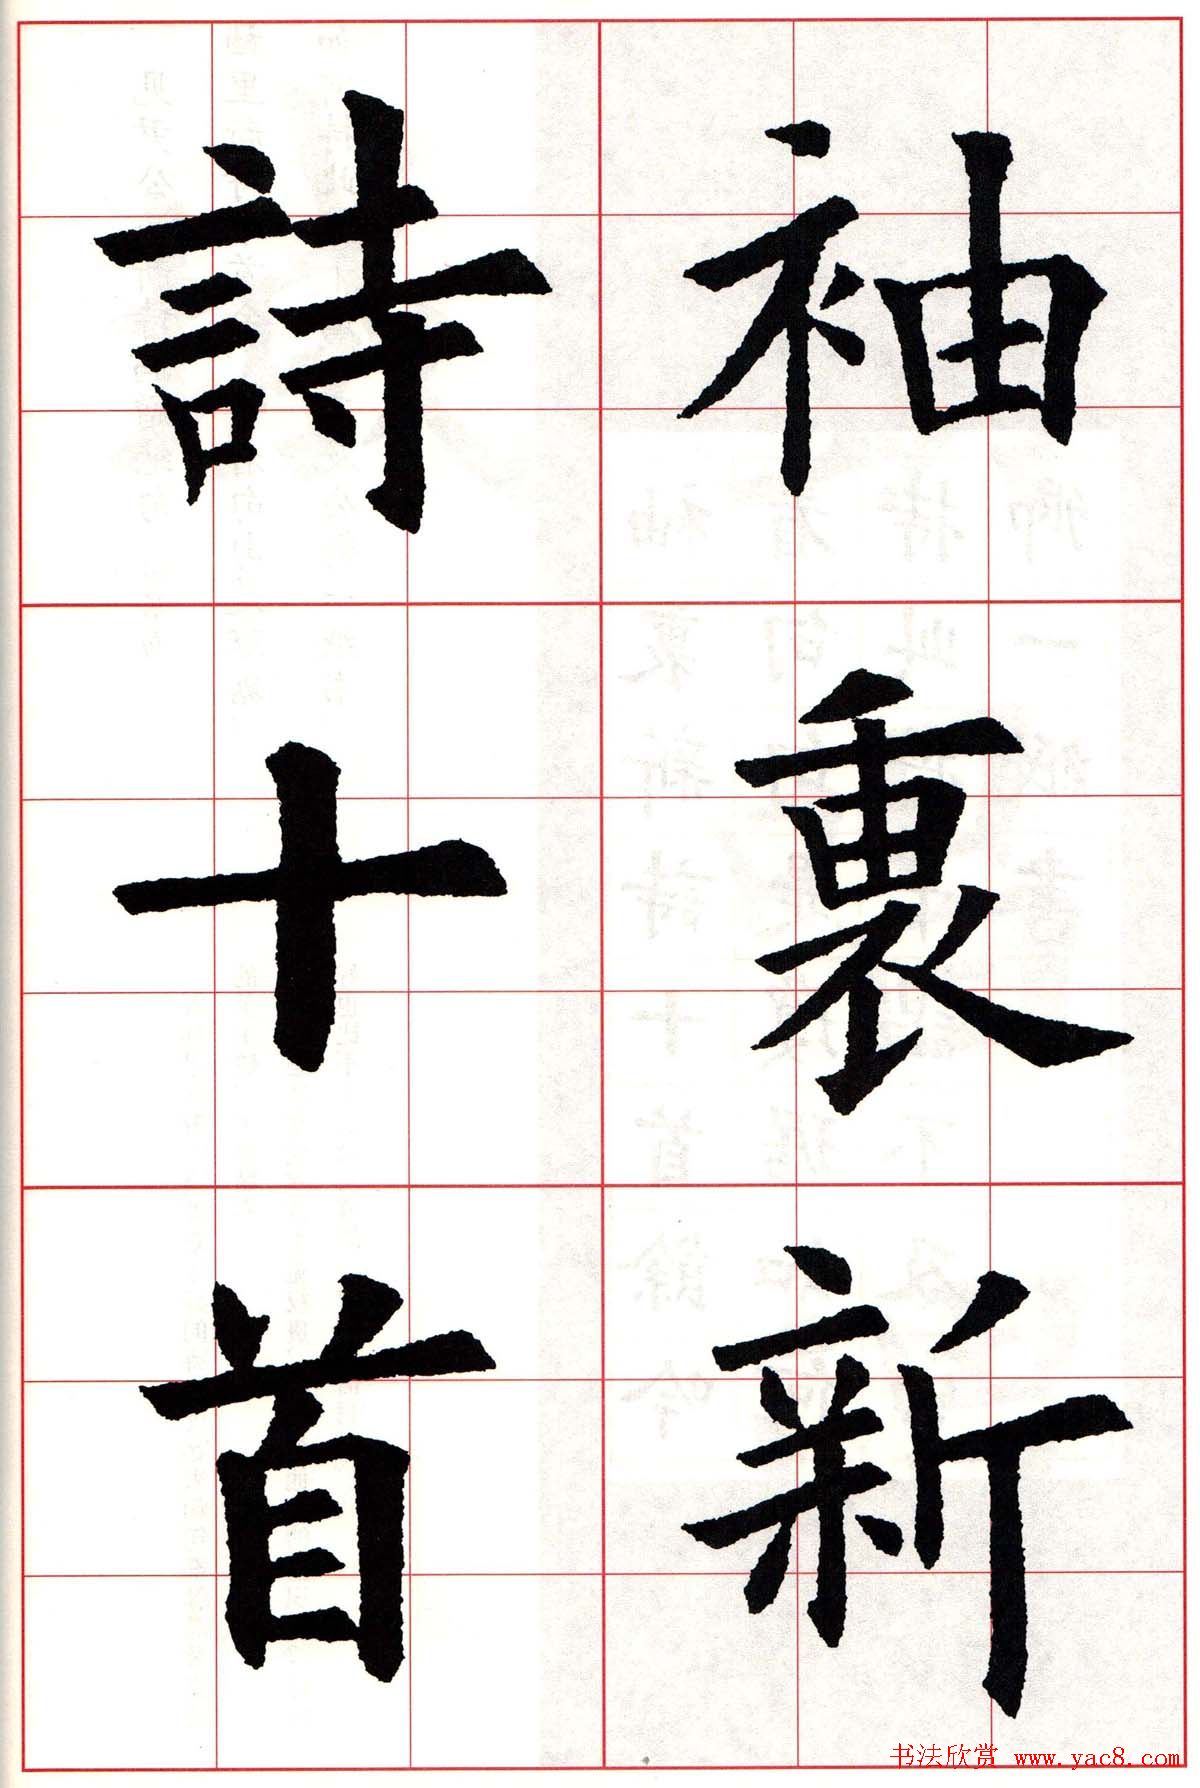 袖裏新
詩十首
书法欣赏 www.yac8.com